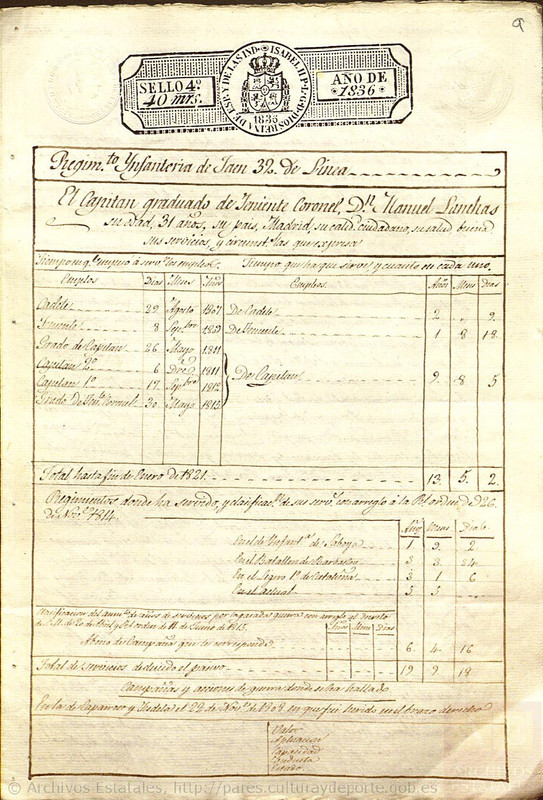 9
SELLO 4º
40 mrs.
ISABEL II. P. L. G. D. DIOS REINA DE ESP. Y DE LAS IND.
1836
AÑO DE
1836
Regim.to Ynfanteria de Jaen 32. de Linea
El Capitan graduado de Teniente Coronel, Dn. Manuel Lanchas
su edad, 31 años, su pais, Madrid, su calid. ciudadano, su salud buena
sus servicios, y circunst.as las que expresa
Tiempo en q.e empezó á servir los empleos. Tiempo que ha que sirve y cuanto en cada uno.
Empleos Dias Meses Años Empleos. Años Meses Dias
Cadete 29 Agosto 1807 De Cadete 2 9.
Teniente 8 Sep.bre 1809 De Teniente 1 8 18.
Grado de Capitan 26 Mayo 1811
Capitan 2º 6 Dre. 1811 De Capitan 9. 8 5
Capitan 1º 17 Sep.bre 1812
Grado de Ten.te Coronel 30 Mayo 1815
Total hasta fin de Enero de 1821. 13. 5. 2.
Regimientos donde ha servido, y clasificac.n de sus serv.os con arreglo á la Rl. orden de 26.
de Nov.e 1814.
Años Meses Dias
En el de Infant.a de Saboya 1 9. 2
En el Batallon de Barbastro 3 24
En el Ligero 1º de Cataluña 3 1 6
En el actual 3 3
Años Meses Dias
Abono de Campaña que le corresponde 6 4. 16
Total de servicios deducido el pasivo 19 9 18
Campañas y acciones de guerra donde se ha hallado
En la de Caparroso y Tudela el 22 de Nov.e de 1808 en que fué herido en el brazo derecho
Valor
Aplicacion
Capacidad
Conducta
Estado
© Archivos Estatales, http://pares.culturaydeporte.gob.es